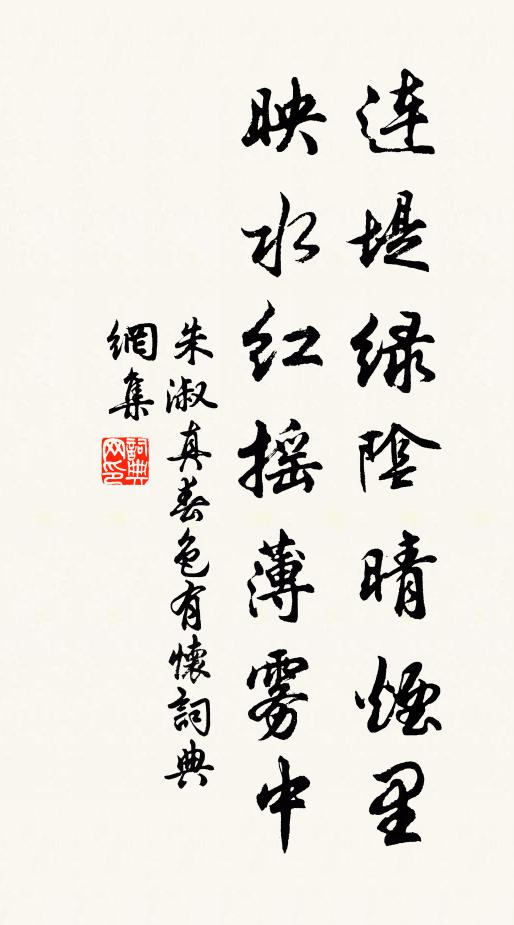 连堤绿阴晴烟里
映水红摇薄雾中
朱淑真春色有怀词典
網集
詞典网印